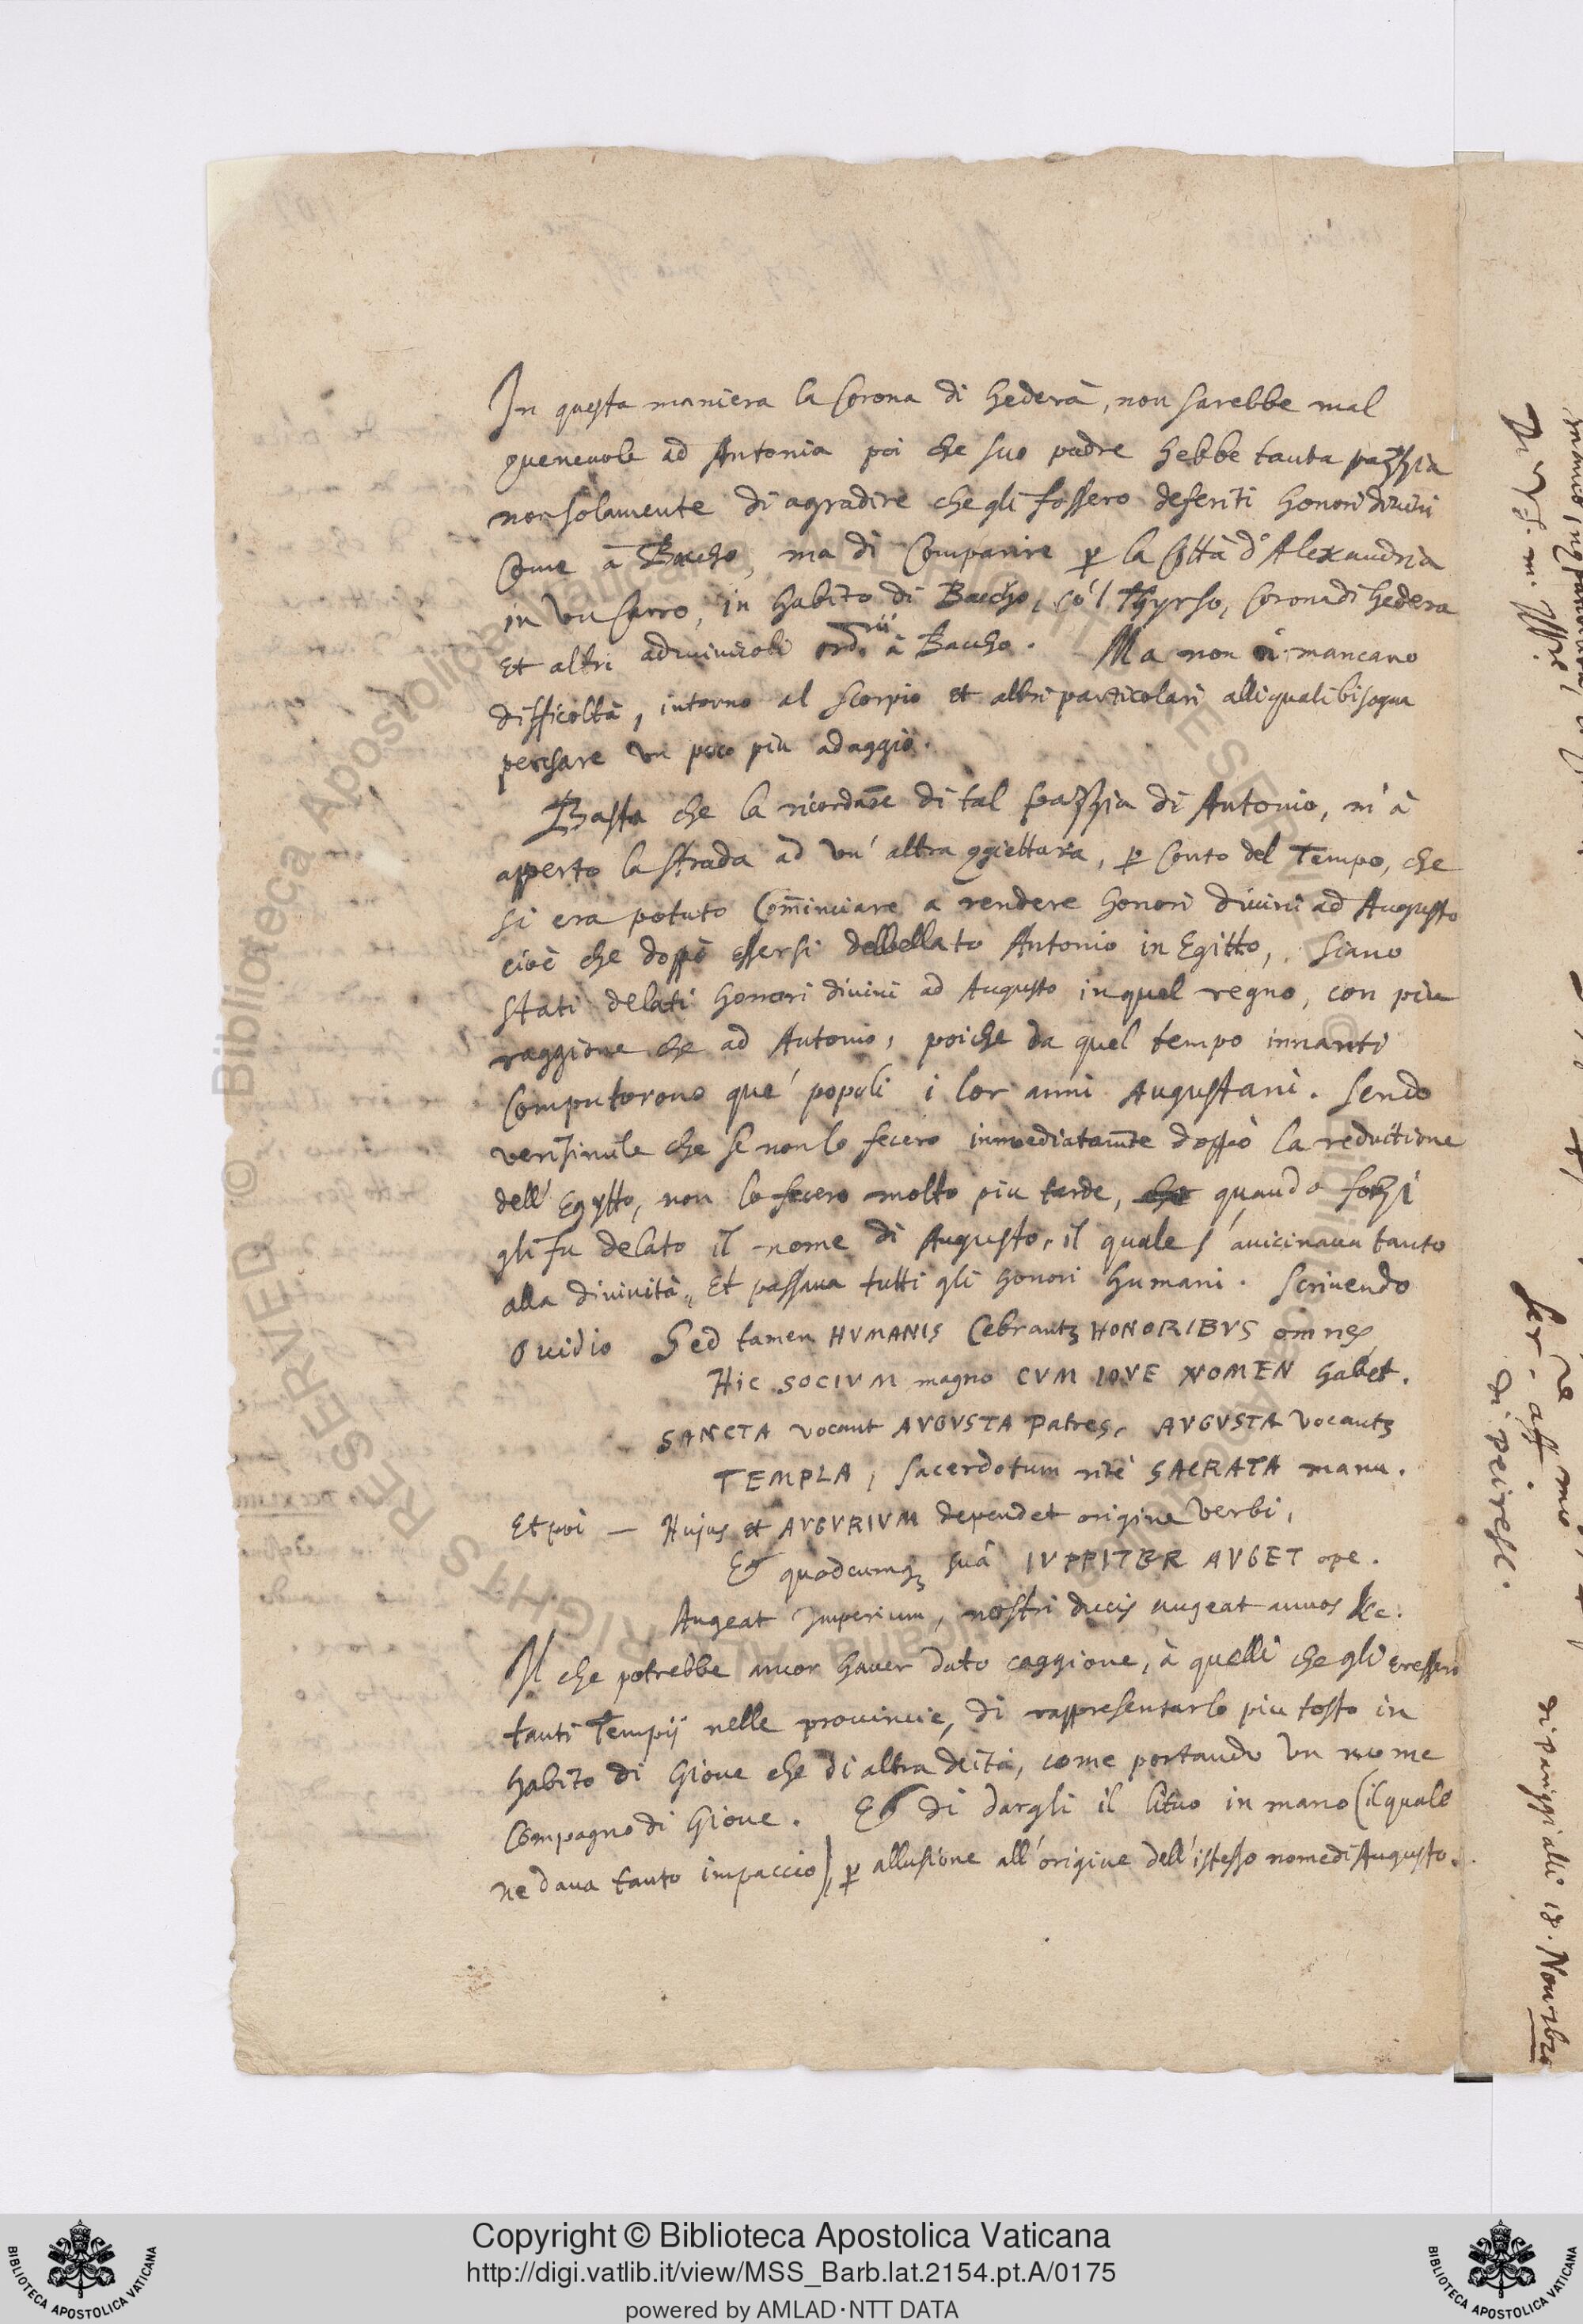 In questa maniera la Corona di hederà, non sarebbe mal
ɔvenevole ad Antonia poi che suo padre hebbe tanta pazzia
non solamente di agradire che gli fossero deferiti honori divini
Come à Baccho, ma di Comparire p la Città d'Alexandria
in vn Carro, in habito di Baccho, co'l Thyrso, Corona di hedera
Et altri adminicoli ord.rii à Baccho. Ma non mancano
difficoltà, intorno al scorpio et altri particolari alli quali bisogna
pensare vn poco piu adaggio.
Basta che la ricordãze di tal pazzia di Antonio, m'à
apperto la strada ad vn' altra ɔgiettura, p Conto del Tempo, che
si era potuto Com̃inciare a rendere honori divini ad Augusto
cioè che doppò essersi debbellato Antonio in Egitto, siano
stati delati honori divini ad Augusto in quel regno, con piu
raggione che ad Antonio, poiche da quel tempo innanti
Computorono que' popoli i lor anni Augustani. sendo
verisimile che se non lo fecero immediatam̃te doppò la reductione
dell' Egytto, non lo fecero molto piu tarde, quando forzi
gli fu delato il nome di Augusto, il quale s'avicinava tanto
alla divinità, Et passava tutti gli honori humani. Scrivendo
Ovidio Sed tamen HVMANIS Cebrantz HONORIBVS omnes
Hic SOCIVM magno CVM IOVE NOMEN habet.
SANCTA vocant AVGVSTA Patres, AVGVSTA vocantz
TEMPLA, sacerdotum ritè SACRATA manu.
Et poi — Hujus et AVGVRIVM dependet origine verbi,
Et quodcumqz suâ IVPPITER AVGET ope.
Augeat Imperium, nostri ducis augeat annos &c.
Il che potrebbe ancor haver dato caggione, à quelli che gli eressero
tanti Tempij nelle provincie, di rappresentarlo piu tosto in
habito di Giove che di altra deità, come portando vn nome
Compagno di Giove. Et di dargli il lituo in mano (il quale
ne dava tanto impaccio) p allusione all'origine dell'istesso nome di Augusto.
Di V.S. m. Ill.re
ser. aff.mo
di Peiresc.
di Pariggi alli 18. Novibre
Copyright © Biblioteca Apostolica Vaticana
http://digi.vatlib.it/view/MSS_Barb.lat.2154.pt.A/0175
powered by AMLAD·NTT DATA
BIBLIOTECA APOSTOLICA VATICANA
BIBLIOTECA APOSTOLICA VATICANA